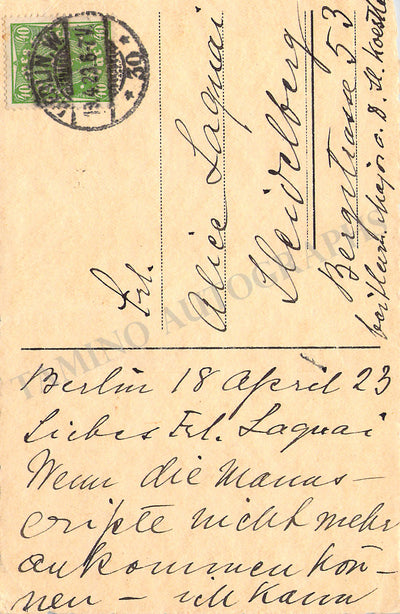 40 40
40 40
BERLIN W.
18.4.23.6-7V.
* 30 *
Frl.
Alice Laquai
Heidelberg
Bergstrasse 53
bei Herrn Major a. D.
TAMINO AUTOGRAPHS
Berlin 18 April 23
Liebes Frl. Laquai
Wenn die Manus-
cripte nicht mehr
ankommen kön-
nen – ich kann